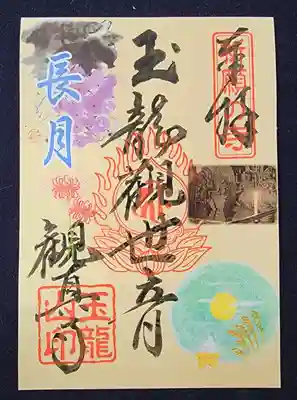 奉拝
玉龍観世音
長月
観真寺
玉龍
山印